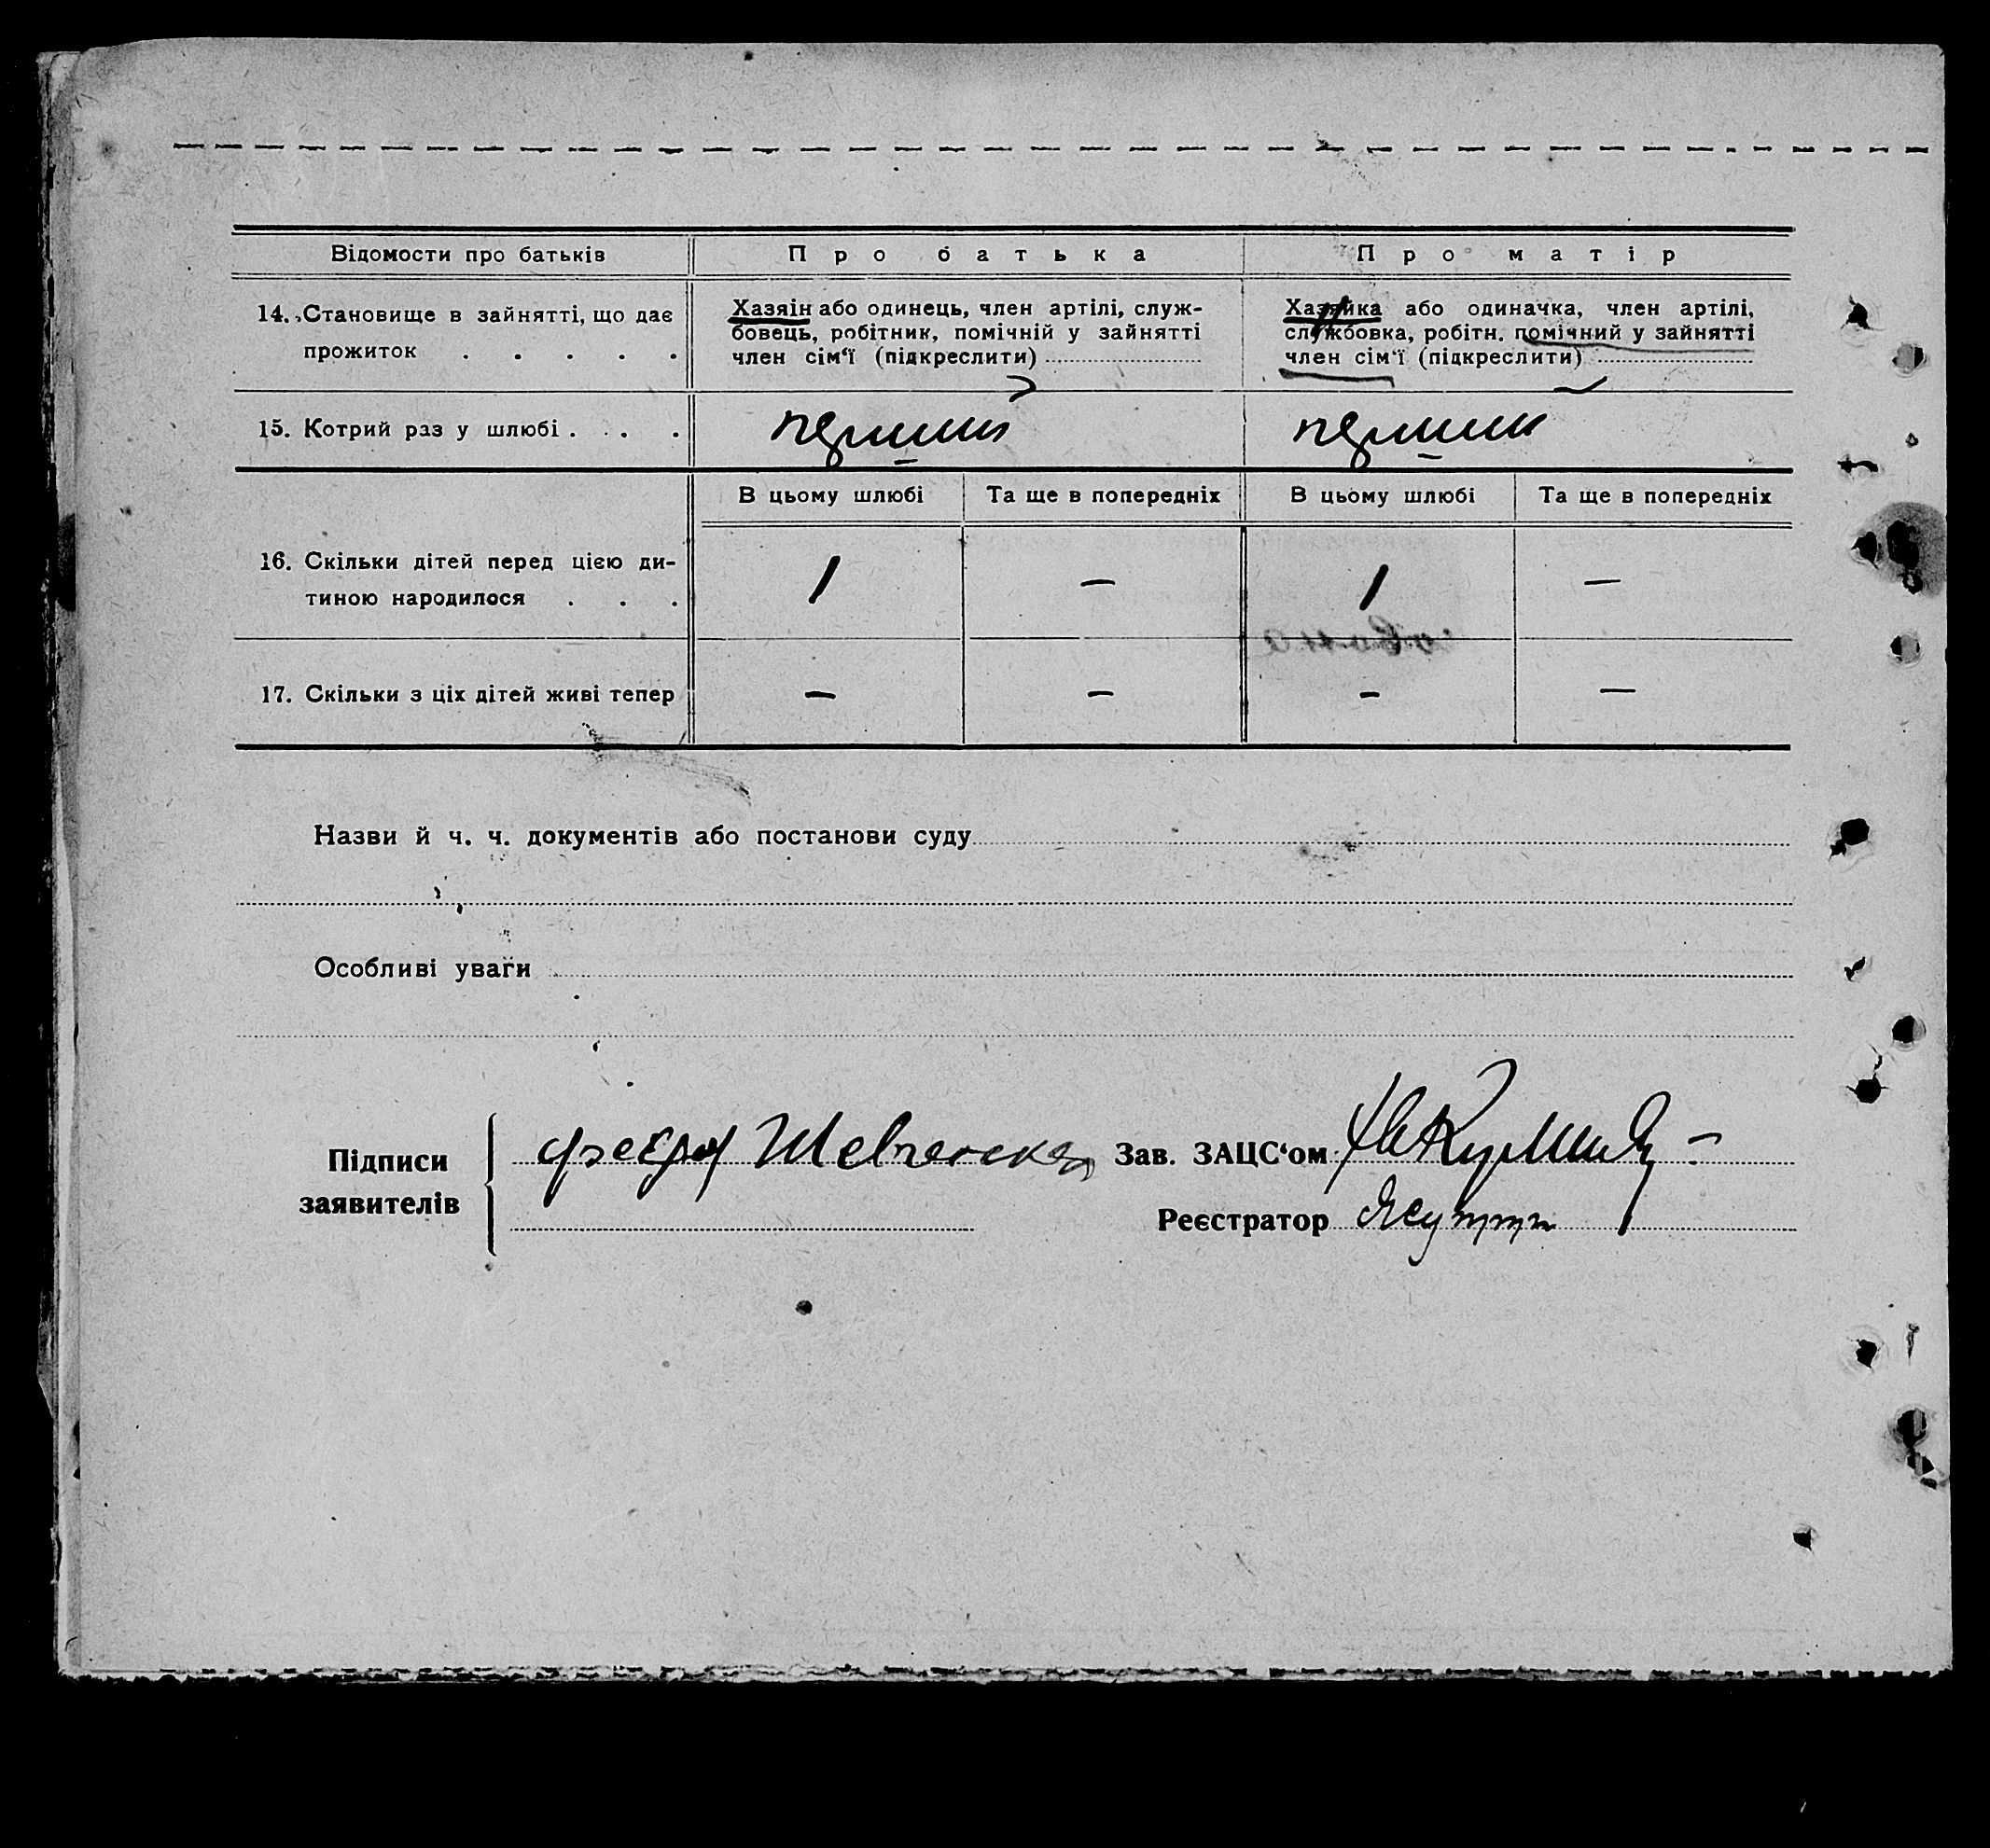 Відомости про батьків
Про батька
Про матір
14. Становище в зайнятті, що дає
прожиток . . . . .
Хазяін або одинець, член артілі, служ-
бовець, робітник, помічній у зайнятті
член сім‘ї (підкреслити)
Хазяйка або одиначка, член артілі,
службовка, робітн. помічний у зайнятті
член сім‘ї (підкреслити)
15. Котрий раз у шлюбі . . . .
перший
перший
В цьому шлюбі
Та ще в попередніх
В цьому шлюбі
Та ще в попередніх
16. Скільки дітей перед цією ди-
тиною народилося . . .
1
—
1
—
17. Скільки з ціх дітей живі тепер
—
—
—
—
Назви й ч. ч. документів або постанови суду
Особливі уваги
Підписи
заявителів
Шевченская
Зав. ЗАЦС‘ом
Реєстратор